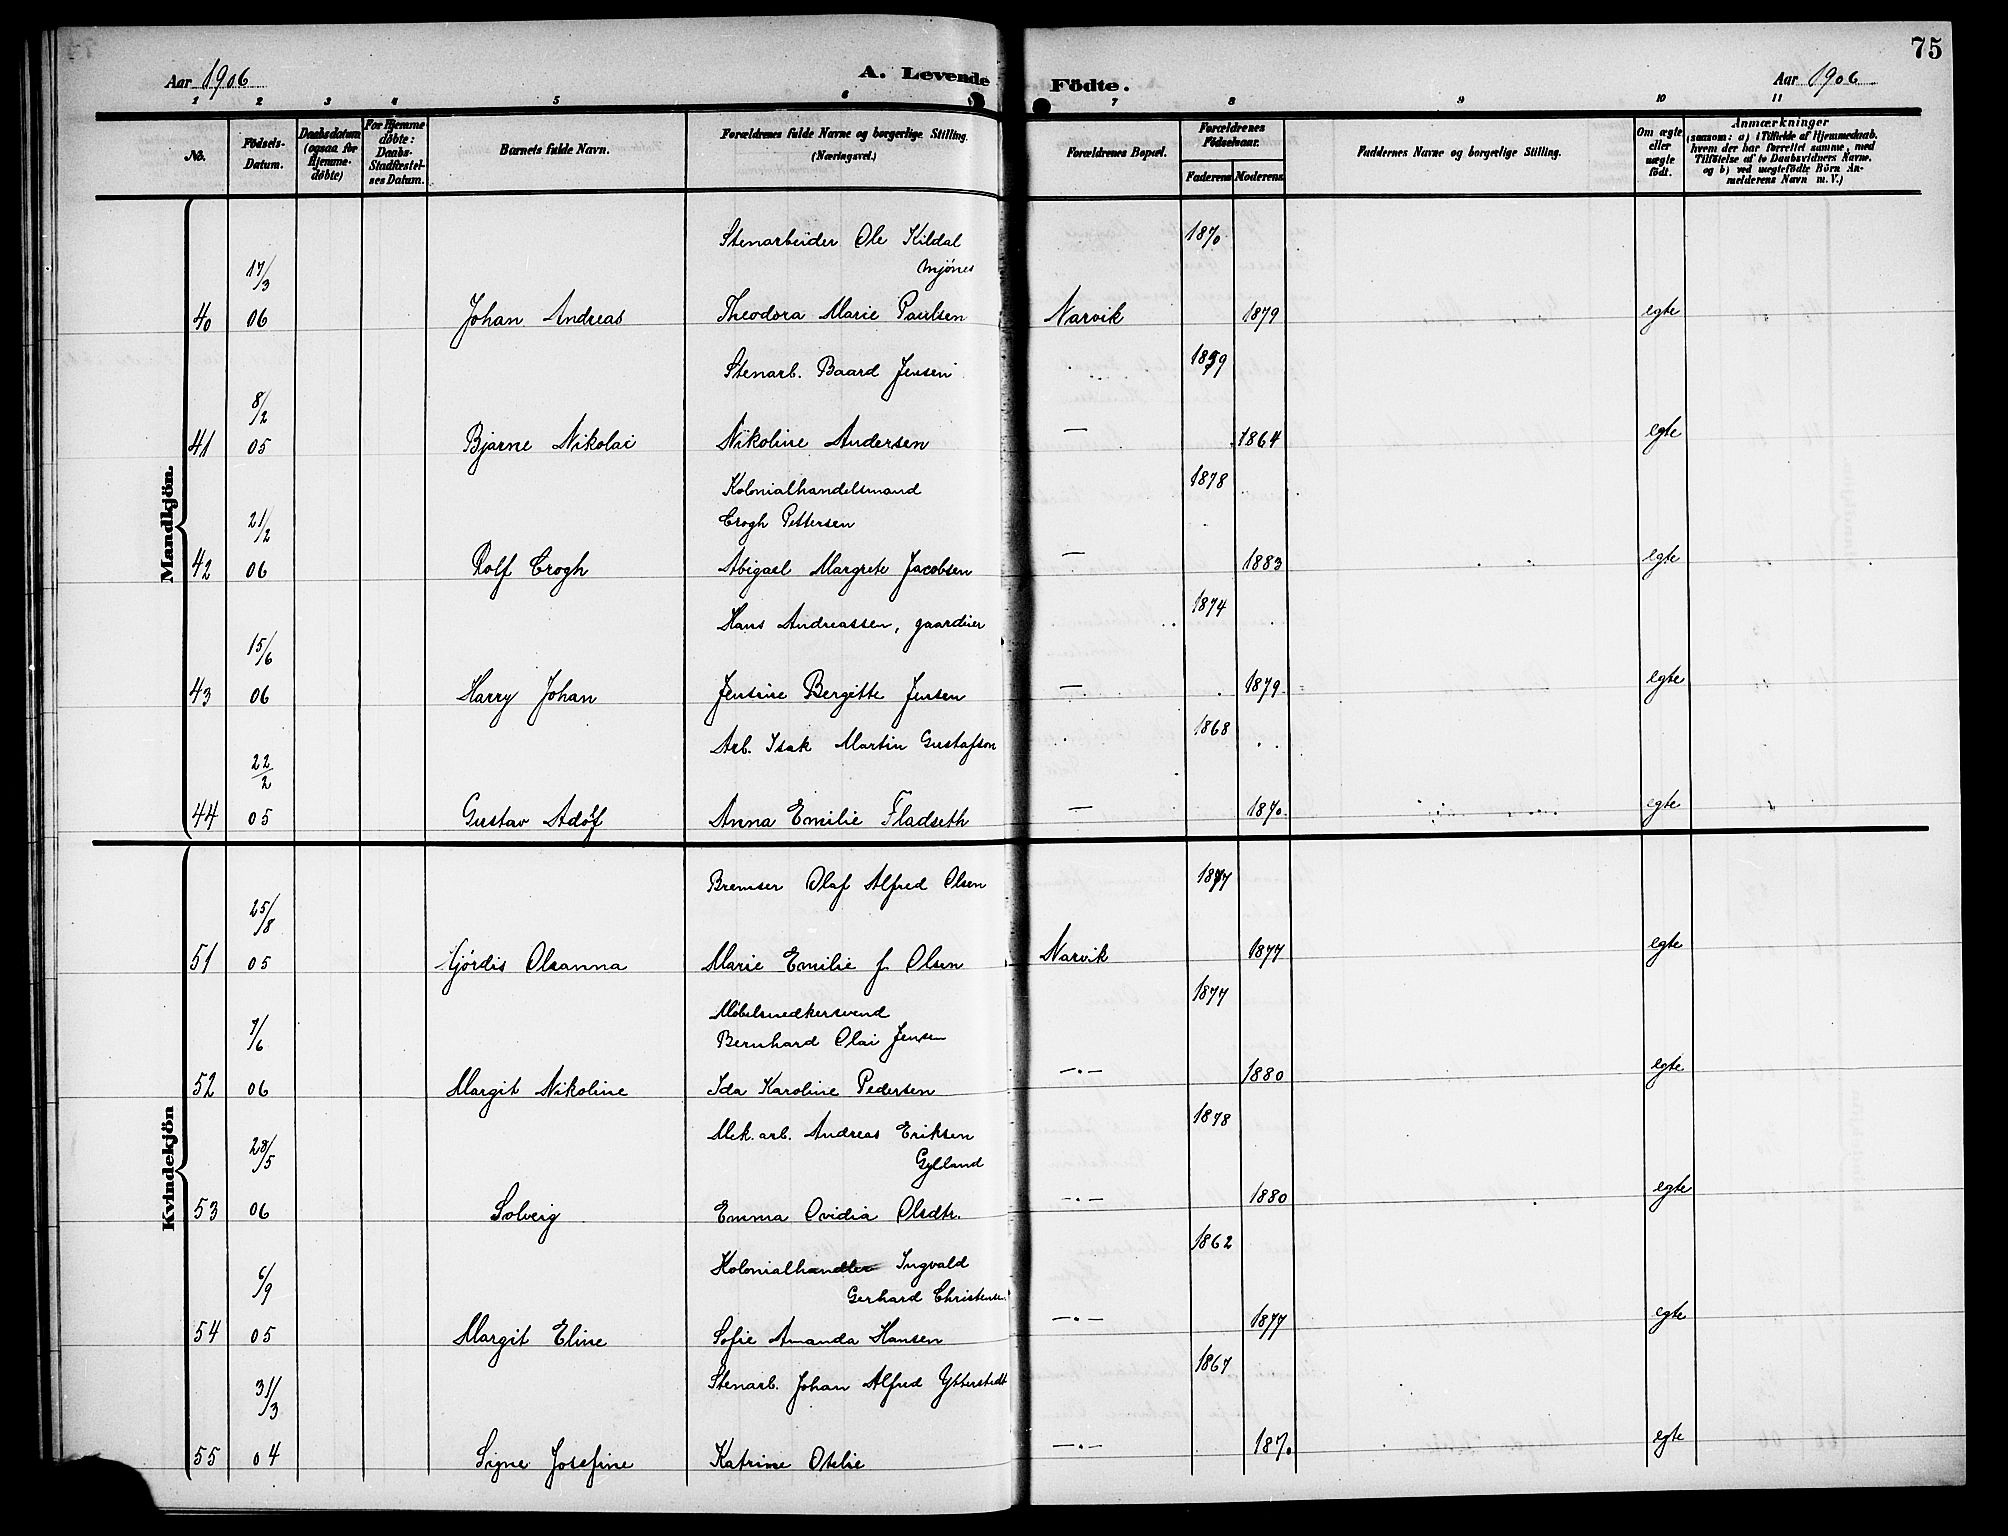 75
Aar 1906
A. Levende Födte.
Aar 1906
1 2 3 4 5 6 7 8 9 10 11
No.
Födsels-Datum.
Daabsdatum (ogsaa for Hjemme-döbte)
For Hjemme-døbte: Daabs-Stadfæstel-ses Datum.
Barnets fulde Navn.
Forældrenes fulde Navne og borgerlige Stilling. (Næringsvei.)
Forældrenes Bopæl.
Forældrenes Födselsaar.
Faderens Moderens
Faddernes Navne og borgerlige Stilling.
Om ægte eller uægte födt.
Anmærkninger
(saasom: a) i Tilfælde af Hjemmedaab, hvem der har forrettet samme, med Tilföielse af to Daabsvidners Navne, og b) ved uægtefödte Börn An-melderens Navn m. V.)
Mandkjön.
Stenarbeider Ole Kildal 1870
17/3 Mjönes
40 06 Johan Andreas Theodora Marie Paulsen Narvik 1879 egte
Stenarb. Baard Jensen 1859
8/2
41 05 Bjarne Nikolai Nikoline Andersen — 1864 egte
Kolonialhandelsmand 1878
21/2 Crogh Pettersen
42 06 Rolf Crogh Abigael Margrete Jacobsen — 1883 egte
Hans Andreassen, gaardeier 1874
15/6
43 06 Harry Johan Jensine Bergitte Jensen — 1879 egte
Arb. Isak Martin Gustafson 1868
22/2
44 05 Gustav Adolf Anna Emilie Fladseth — 1870 egte
Kvindekjön
Bremser Olaf Alfred Olsen 1877
25/8
51 05 Hjördis Olianna Marie Emilie f. Olsen Narvik 1877 egte
Møbelsnedkersvend 1877
7/6 Bernhard Olai Jensen
52 06 Margit Nikoline Ida Karoline Pedersen —"— 1880 egte
Mek. arb. Andreas Eriksen 1878
28/5 Gylland
53 06 Solveig Emma Ovidia Olsdtr. —"— 1880 egte
Kolonialhandler Ingvald 1862
6/9 Gerhard Christensen
54 05 Margit Eline Sofie Amanda Hansen —"— 1877 egte
Stenarb. Johan Alfred Ytterstedt 1867
31/3
55 04 Signe Josefine Katrine Otelie —"— 1870 egte